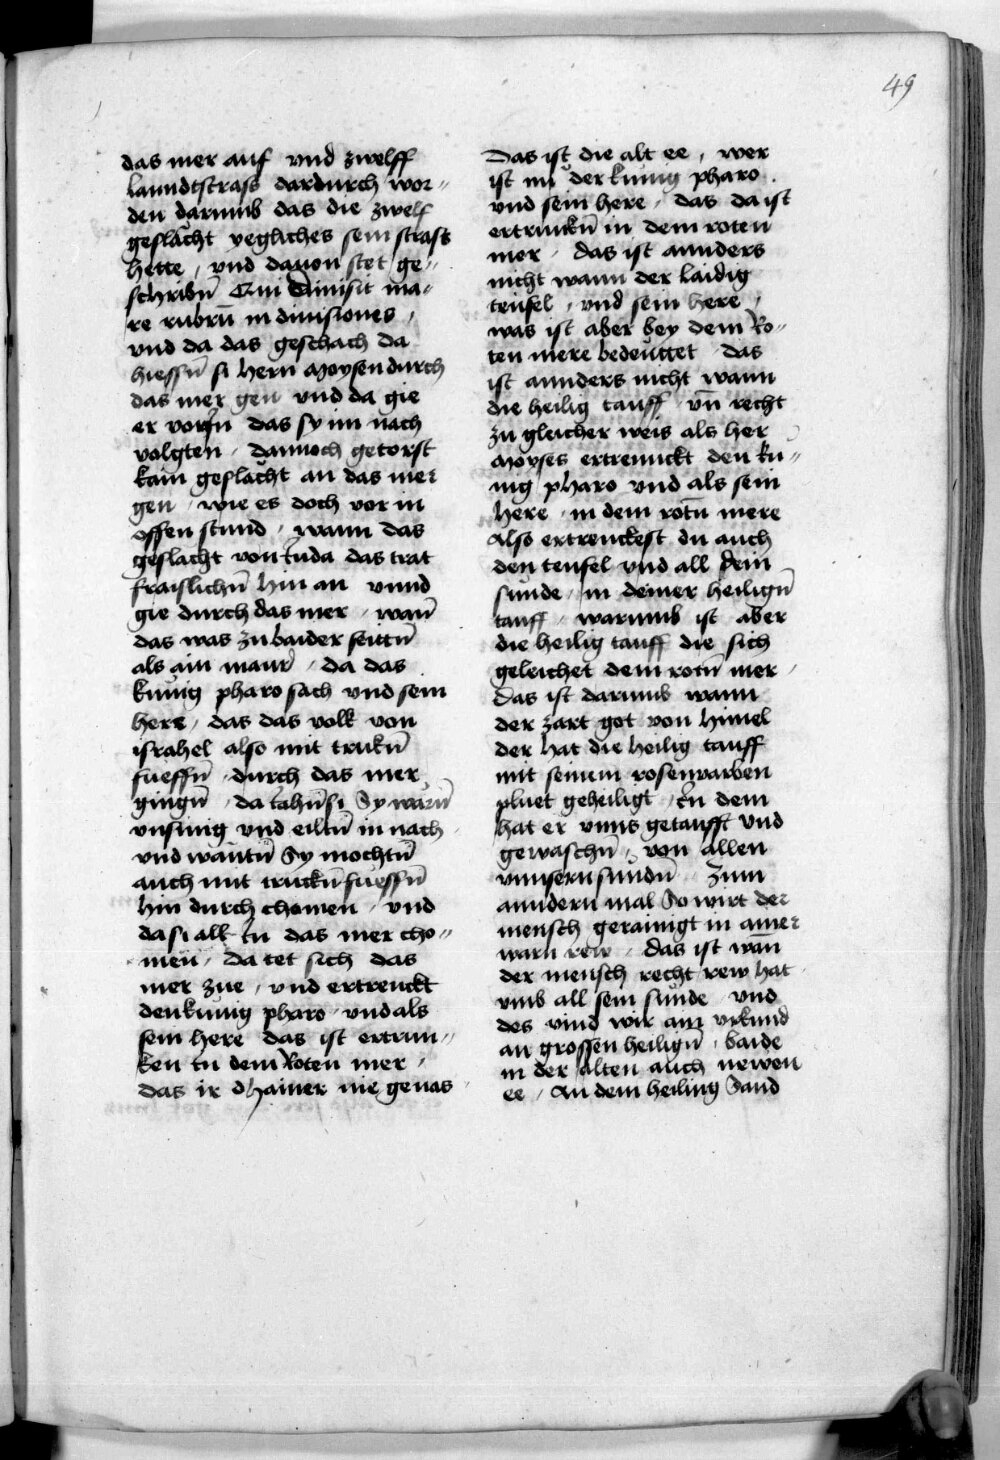 49
das mer auf vnd zwelff
lanndtstrass dardurch wor„
den darumb das die zwelf
geslächt yegliches sein strass
hette / vnd dauon stet ge„
schribn̄ Qui diuisit ma„
re rubrū in diuisiones /
vnd da das geschach da
hiessn̄ si hern Moysen durch
das mer gen vnd da gie
er vorhin das sy im nach
volgten / dannoch getorst
kain geslächt an das mer
gen / wie es doch vor in
offen stund / wann das
geslacht von Juda das trat
fraislichn̄ hin an vnnd
gie durch das mer / wan̄
das was zu baider seittn̄
als ain maur / da das
kunig pharo sach vnd sein
here / das das volk von
israhel also mit trukn̄
fuessn̄ / durch das mer
gingn̄ / da sy warn̄
vnsinig vnd eiltn̄ in nach
vnd wantn̄ Sy mochtn̄
auch mit truckn̄ fuessn̄
hin durch chomen / vnd
da si all in das mer cho„
men / da tet sich das
mer zue / vnd ertrenckt
den kunig pharo / vnd als
sein here das ist ertrun„
ken in dem Roten mer /
das ir dhainer nie genas
Das ist die alt ee / wer
ist nu der kunig pharo
vnd sein here / das da ist
ertrunkn̄ in dem roten
mer / das ist annders
nicht wann der laidig
teufel / vnd sein here /
was ist aber bey dem Ro„
ten mere bedeuttet das
ist annders nicht wann
die heilig tauff vn̄ recht
zu gleicher weis als her
Moyses ertrennckt den ku„
nig pharo vnd als sein
here / in dem rotn̄ mere
Also ertrenckest du auch
den teufel vnd all dein
sunde / in deiner heilign̄
tauff / warumb ist aber
die heilig tauff die sich
geleichet dem rotn̄ mer /
Das ist darumb wann
der zart got von himel
der hat die heilig tauff
mit seinem rosenuarben
pluet geheiligt / in dem
hat er vnns getaufft vnd
gewaschn̄ / von allen
vnnsern sundn̄ Zum
anndern mal So wirt der
mensch gerainigt in ainer
warn rew / das ist wan̄
der mensch recht rew hat
vmb all sein sunde vnd
des vind wir ain vrkund
an grossen heilign̄ / baide
in der alten auch newen
ee / An dem heiling Sand